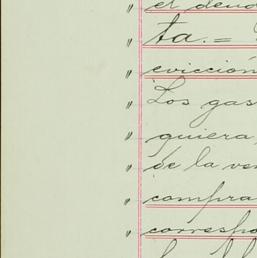 " el deno
" ta. =
" evicción
" Los gas
" quiera,
" de la ven
" compra
" correspo